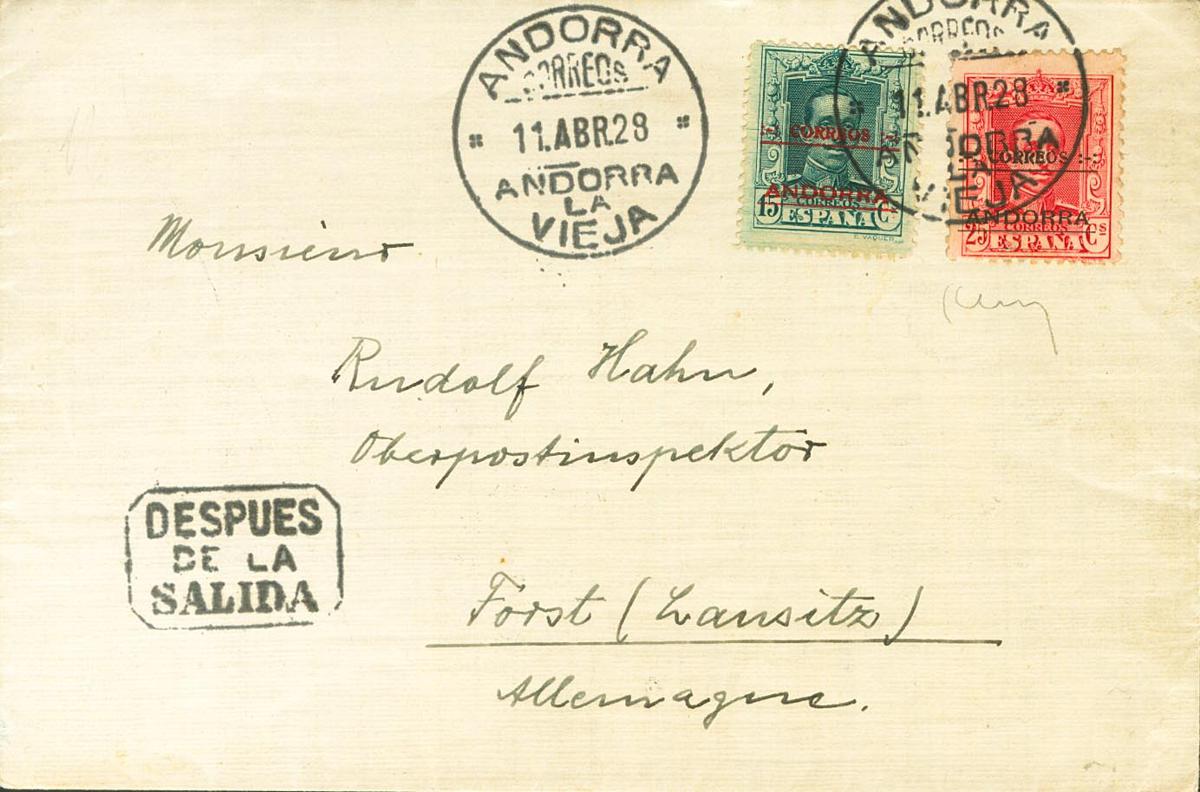 ANDORRA
CORREOS
11.ABR.28
ANDORRA
LA
VIEJA
ANDORRA
CORREOS
11.ABR.28
ANDORRA
LA
VIEJA
:-: CORREOS :-:
ANDORRA
CORREOS
15 ESPAÑA Cs
E. VAQUER
:-: CORREOS :-:
ANDORRA
CORREOS
25 ESPAÑA Cs
Monsieur
Rudolf Hahn,
Oberpostinspektor
DESPUES
DE LA
SALIDA
Forst (Lausitz)
Allemagne.